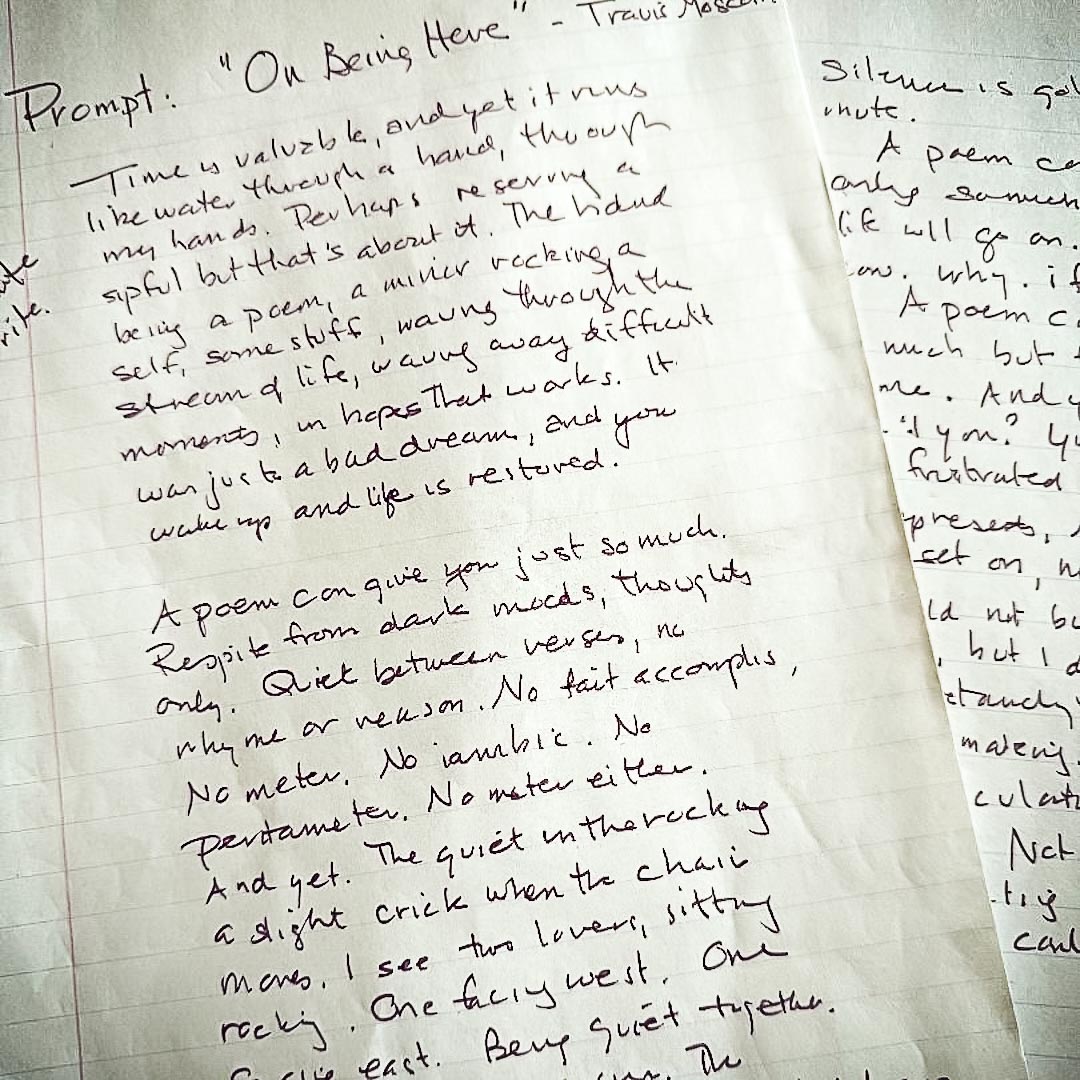 Prompt: "On Being Here" - Travis
Time is valuable, and yet it runs
like water through a hand, through
my hands. Perhaps reserving a
sipful but that's about it. The hand
being a poem, a mirror rocking a
self, some stuff, waving through the
stream of life, waving away difficult
moments, in hopes that works. It
was just a bad dream, and you
wake up and life is restored.
A poem can give you just so much.
Respite from dark moods, thoughts
only. Quiet between verses, no
rhyme or reason. No fait accomplis,
No meter. No iambic. No
pentameter. No meter either.
And yet. The quiet in the rocking
a slight crick when the chair
moves. I see two lovers, sitting
rocking. One facing west. One
east. Being quiet together.
The
Silence is
mute.
A poem
only so much
life will go on.
why. if
A poem
much but
me. And
you?
frustrated
presents,
set on,
not
but I
Not